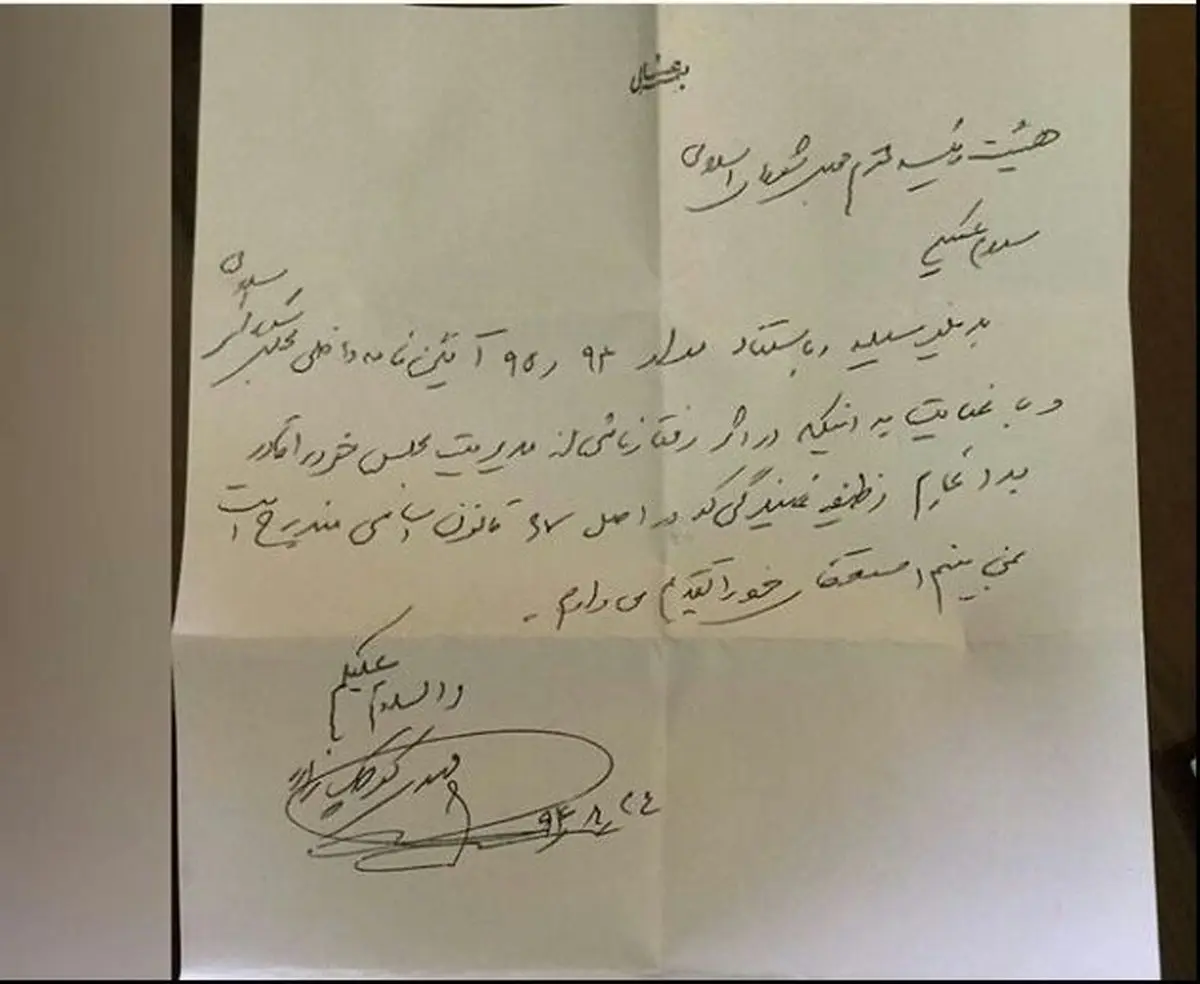 بسمه تعالی
هیئت رئیسه محترم مجلس شورای اسلامی
سلام علیکم
بدینوسیله و باستناد مواد ۹۳ و ۹۵ آئین نامه داخلی مجلس شورای اسلامی
و با عنایت به اینکه در اثر رفتار ناشی از مدیریت مجلس خود را قادر
به انجام وظیفه نمایندگی که در اصل ۶۷ قانون اساسی مندرج است
نمی بینم استعفای خود را تقدیم می دارم .
والسلام علیکم
مهدی کوچک زاده
۹۴/۸/۲۴